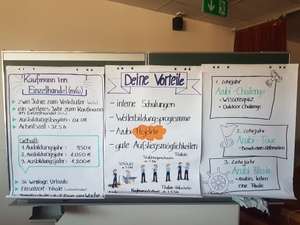 Kaufmann im
Einzelhandel (m/w)
zwei Jahre zum Verkäufer
ein weiteres Jahr zum Kaufmann
im Einzelhandel
Arbeitszeit: 37,5 h
Gehalt:
1. Ausbildungsjahr: 950€
2. Ausbildungsjahr: 1.050€
3. Ausbildungsjahr: 1.200€
36 Werktage Urlaub
Einsatzort: Filiale
Deine Vorteile
- interne Schulungen
- Weiterbildungsprogramme
- Azubi Projekte
- gute Aufstiegsmöglichkeiten
1. Lehrjahr
Azubi-Challenge
- Wissensquiz
- Outdoor Challenge
2. Lehrjahr
Azubi-Tour
3. Lehrjahr
Azubi Filiale
- Azubis leiten
eine Filiale